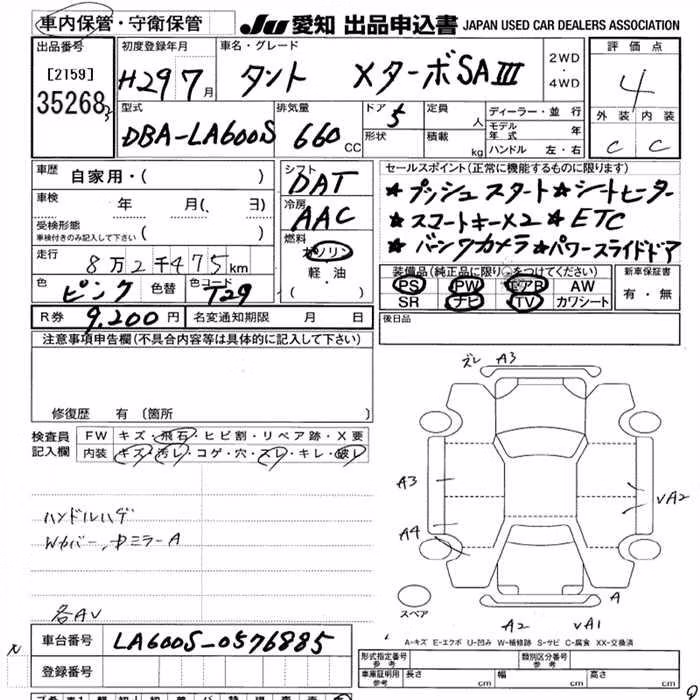 車内保管・守衛保管 JU 愛知 出品申込書 JAPAN USED CAR DEALERS ASSOCIATION
出品番号 [2159] 35268 3
初度登録年月 H29 7月
車名・グレード タント XターボSAⅢ
2WD・4WD
評価点 4
外装 内装
C C
型式 DBA-LA600S
排気量 660 CC
ドア 5
形状
定員 人
積載 kg
ディーラー・並行
モデル年式 年
ハンドル 左・右
車歴 自家用・( )
車検 年 月(、 ヨ)
受検形態
車検付きのみ記入して下さい ( )
走行 8万2千475km
色 ピンク 色替 色コード T29
R券 9,200円 名変通知期限 月 日
シフト DAT
冷房 AAC
燃料 ガソリン
軽・油
・( )
セールスポイント(正常に機能するものに限ります)
★プッシュスタート★シートヒーター
★スコートキー×2 ★ETC
★バックカメラ★パワースライドドア
装備品(純正品に限り○をつけてください)
PS PW エアB AW
SR ナビ TV カワシート
新車保証書 有・無
後日品
注意事項申告欄(不具合内容等は具体的に記入して下さい)
修復歴 有(箇所 )
検査員記入欄
FW キズ・飛石・ヒビ割・リペア跡・X要
内装 キズ・汚レ・コゲ・穴・スレ・キレ・破レ
ハンドルハゲ
Wカバー、中ミラーA
各AV
ズレ A3
A3
A4
vA2
A
A2 vA1
スペア
A-キズ E-エクボ U-凹み W-補修跡 S-サビ C-腐食 XX-交換済
車台番号 LA600S-0576885
登録番号
形式指定番号 参考
類別区分番号 参考
車庫証明用 参考 長さ cm 幅 cm 高さ cm